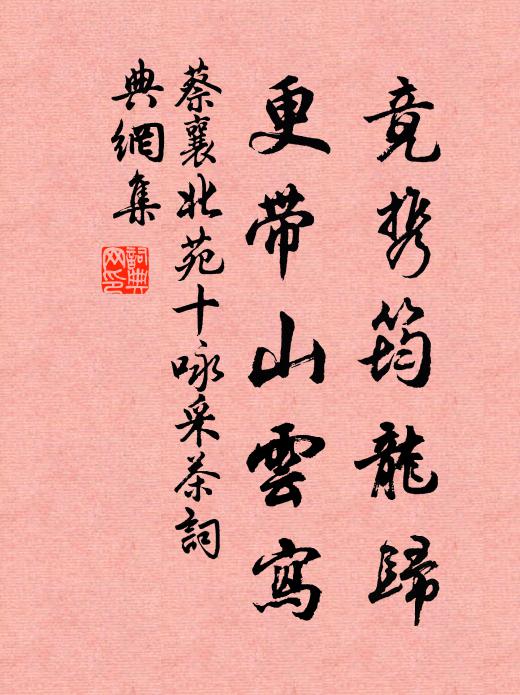 竟携筠龍歸
更帶山雲寫
蔡襄北苑十咏采茶詞
典網集
詞典
网印